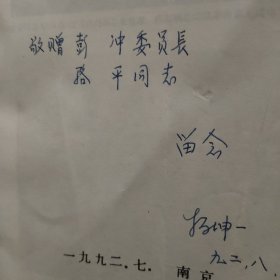 敬赠彭 冲委员長
骆 平同志
留念
杨坤一
九二、八、
一九九二.七. 南京